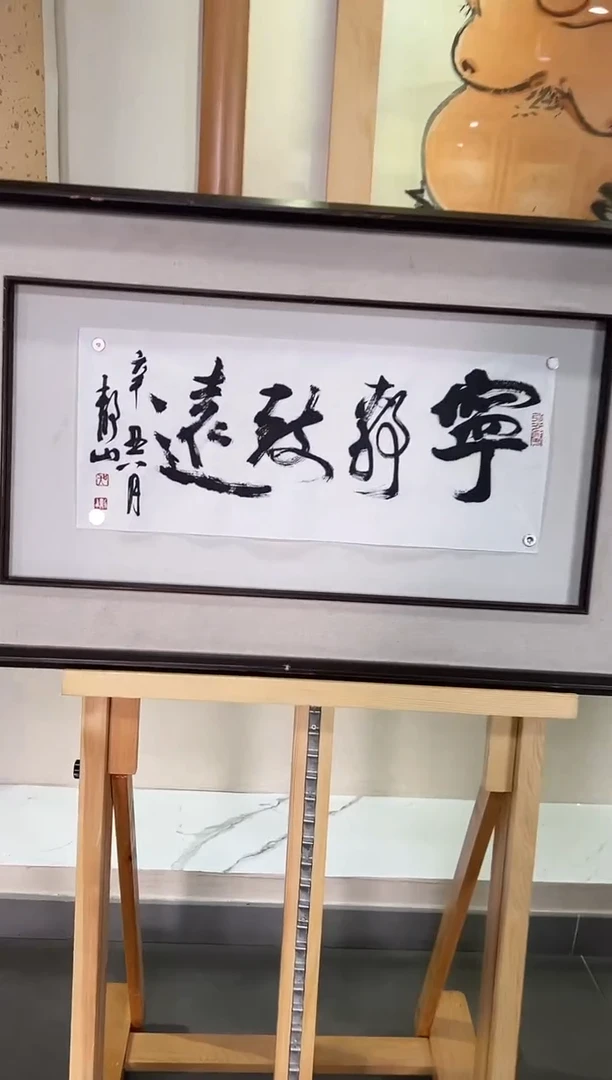 寧靜致遠
辛丑八月
静山